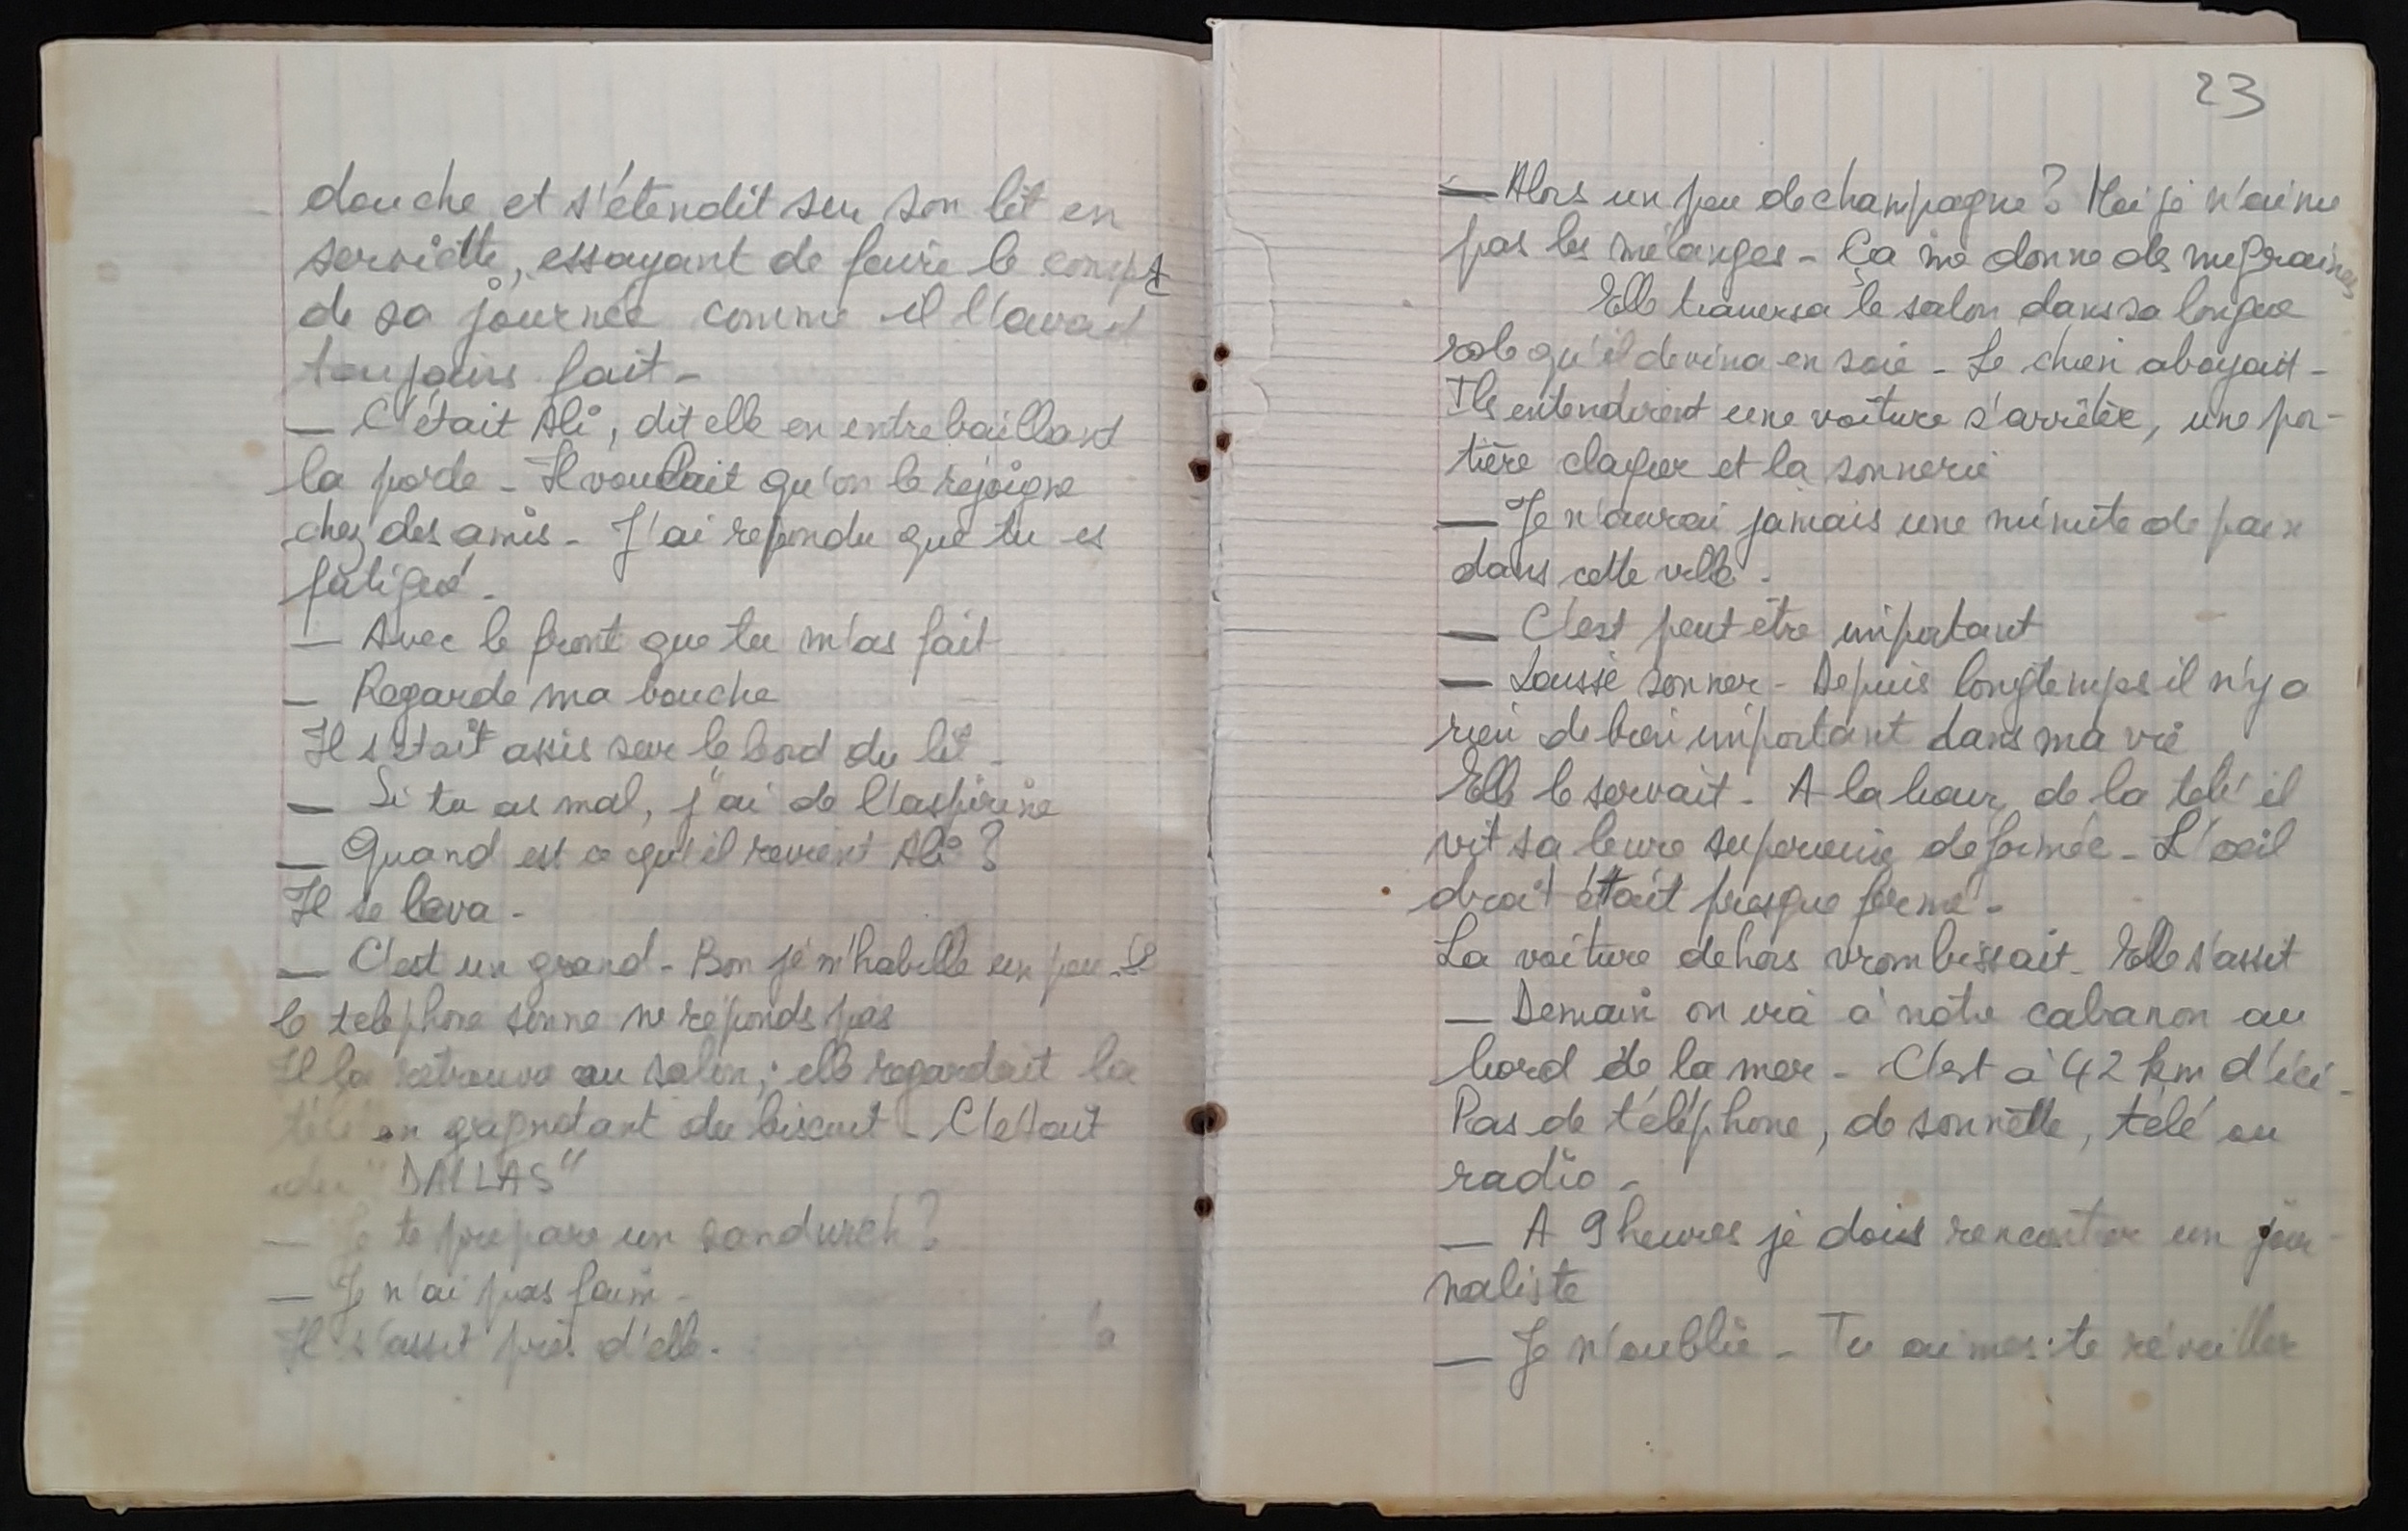 douche et s'étendit sur son lit en
serviette, essayant de faire le compt
de sa journée comme il l'avait
toujours fait -
— C'était Ali, dit elle en entrebaillant
la porte - Il voulait qu'on le rejoigne
chez des amis - J'ai repondu que tu es
fatigué -
— Avec le front que tu m'as fait
— Regarde ma bouche
Il s'était assis sur le bord du lit -
— Si tu as mal, j'ai de l'aspirine
— Quand est ce qu'il revient Ali ?
Il se leva -
— C'est un grand - Bon je m'habille un peu Si
le telephone sonne ne réponds pas
Il la retrouva au salon ; elle regardait la
télé en grignotant du biscuit - C'était
du "DALLAS"
— Je te prepare un sandwich ?
— Je n'ai pas faim -
Il s'assit près d'elle.
23
— Alors un peu de champagne ? Moi je n'aime
pas les mélanges - Ça me donne des migraines
Elle traversa le salon dans sa longue
robe qu'il devina en soie - Le chien aboyait -
Ils entendirent une voiture s'arrêter, une por-
tière claquer et la sonnerie
— Je n'aurai jamais une minute de paix
dans cette ville -
— C'est peut être important
— Laisse sonner - Depuis longtemps il n'y a
rien de bien important dans ma vie
Elle le servait - A la lueur de la télé il
vit sa levre superieure deformée - L'œil
droit était presque fermé -
La voiture dehors vrombissait - Elle s'assit
— Demain on ira à notre cabanon au
bord de la mer - C'est à 42 km d'ici -
Pas de téléphone, de sonnette, télé ou
radio -
— A 9 heures je dois rencontrer un jour-
naliste
— Je n'oublie - Tu aimes te réveiller